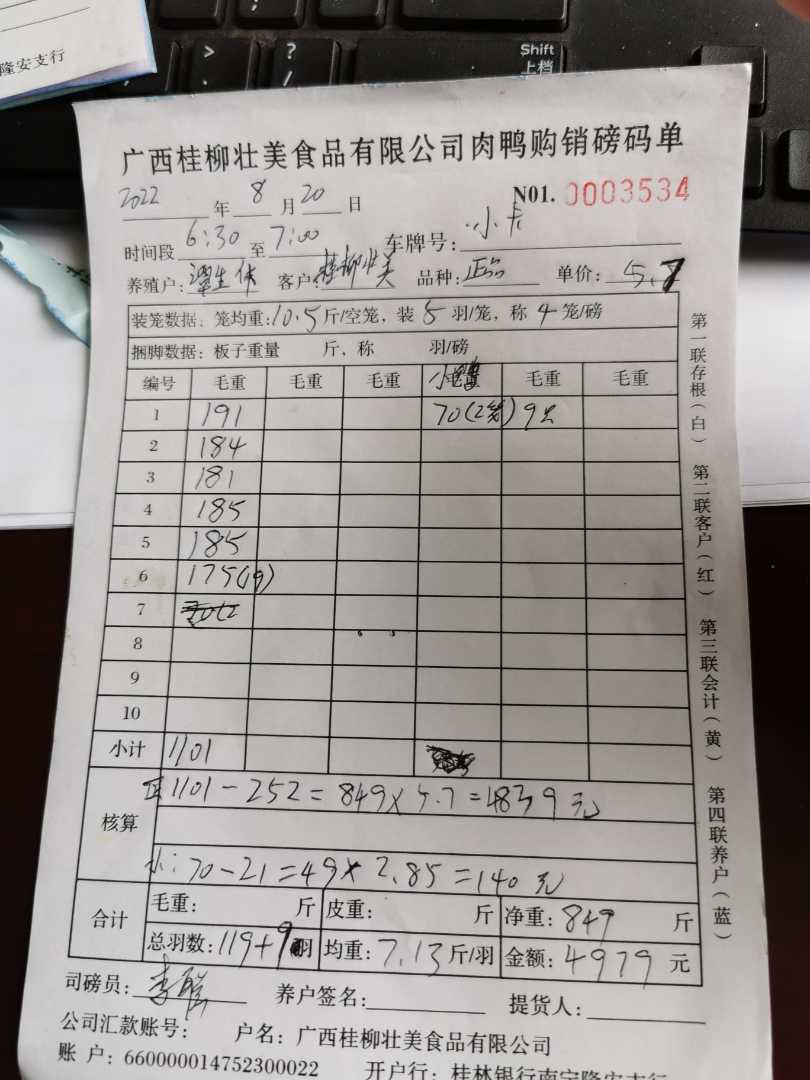 隆安支行
Shift
上档
广西桂柳壮美食品有限公司肉鸭购销磅码单
2022年 8月20日 N01. 0003534
时间段 6:30 至 7:00 车牌号: 小卡
养殖户: 客户: 桂柳壮美 品种: 正品 单价: 5.7
装笼数据: 笼均重:10.5斤/空笼, 装 5 羽/笼, 称 4 笼/磅
捆脚数据: 板子重量 斤, 称 羽/磅
编号 毛重 毛重 毛重 小 毛重 毛重
1 191 70(2笼)9只
2 184
3 181
4 185
5 185
6 175(19)
7
8
9
10
小计 1101
核算
正1101-252=849×5.7=4839元
小:70-21=49×2.85=140元
合计
毛重: 斤 皮重: 斤 净重:849 斤
总羽数:119+9羽 均重:7.13斤/羽 金额:4979元
司磅员: 养户签名: 提货人:
公司汇款账号: 户名: 广西桂柳壮美食品有限公司
账 户: 660000014752300022 开户行: 桂林银行南宁隆安支行
第一联存根(白) 第二联客户(红) 第三联会计(黄) 第四联养户(蓝)